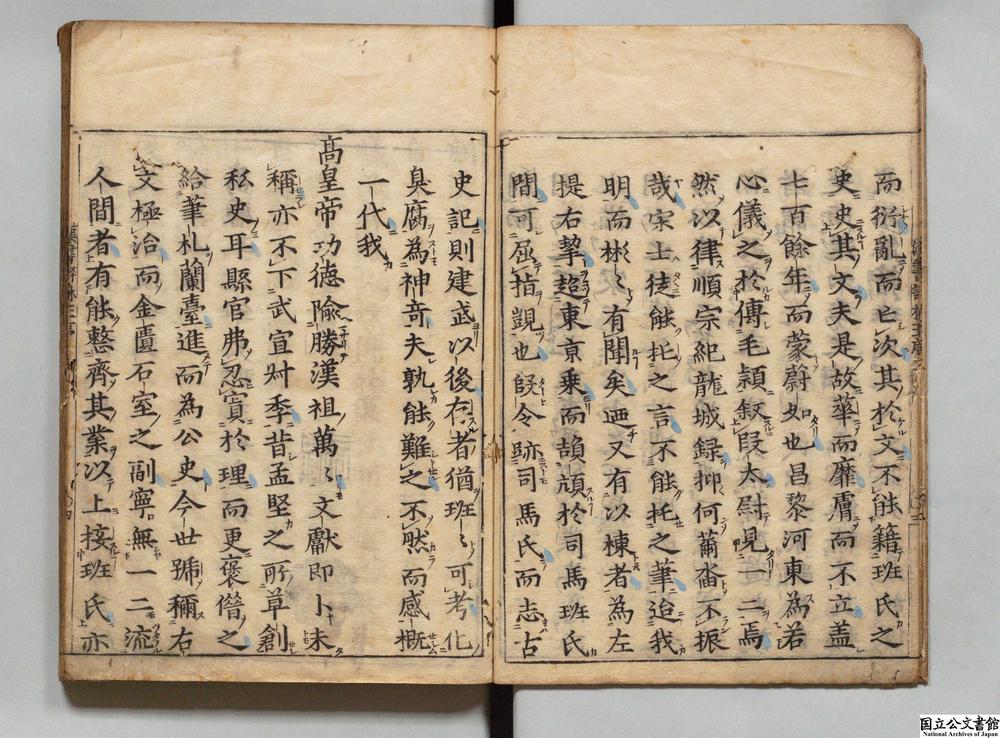 而衍亂而已次其於文不能籍班氏之
史史其文夫是故華而靡膚而不立蓋
七百餘年而蒙蔚如也昌黎河東為若
心儀之於傳毛穎叙段太尉見一二焉
然以律順宗紀龍城録抑何薾沓不振
哉宋士徒能托之言不能托之筆迨我
明而彬〻有聞矣迺又有以棟者為左
提右挈超東京乗而頡頏於司馬班氏
間可屈指覩也叚令跡司馬氏而志古
史記則建武以後存者猶班〻可考化
臭腐為神竒夫孰能難之不佞而感慨
一代我
高皇帝功德隃勝漢祖萬〻文獻即卜未
稱亦不下武宣时季昔孟堅之所草創
私史耳縣官弗忍寘於理而更褒僃之
給筆札蘭臺進而為公史今世號稱右
文極治而金匱石室之副寧無一二流
人間者有能整齊其業以上接班氏亦
國立公文書館
National Archives of Japan